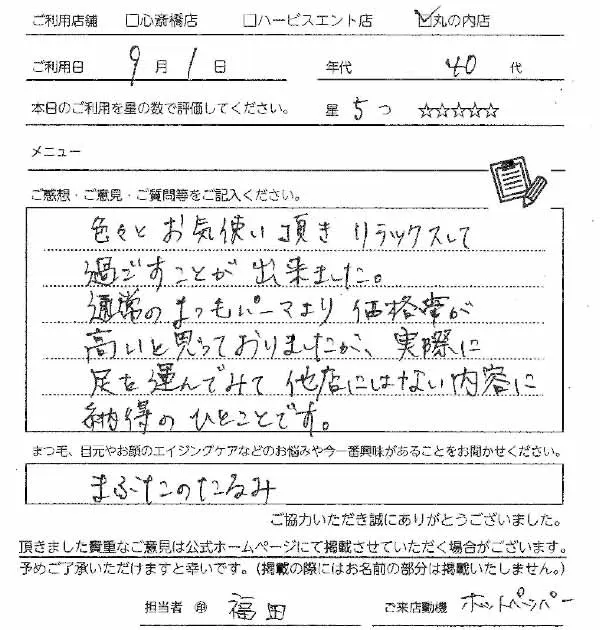 ご利用店舗 □心斎橋店 □ハービスエント店 ☑丸の内店
ご利用日 9月1日 年代 40代
本日のご利用を星の数で評価してください。 星5つ ☆☆☆☆☆
メニュー
ご感想・ご意見・ご質問等をご記入ください。
色々とお気使い頂きリラックスして
過ごすことが出来ました。
通常のまつもパーマより価格帯が
高いと思っておりましたが、実際に
足を運んでみて他店にはない内容に
納得のひとことです。
まつ毛、目元やお顔のエイジングケアなどのお悩みや今一番興味があることをお聞かせください。
まぶたのたるみ
ご協力いただき誠にありがとうございました。
頂きました貴重なご意見は公式ホームページにて掲載させていただく場合がございます。
予めご了承いただけますと幸いです。(掲載の際にはお名前の部分は掲載いたしません。)
担当者 ㊞ 福田 ご来店動機 ホットペッパー